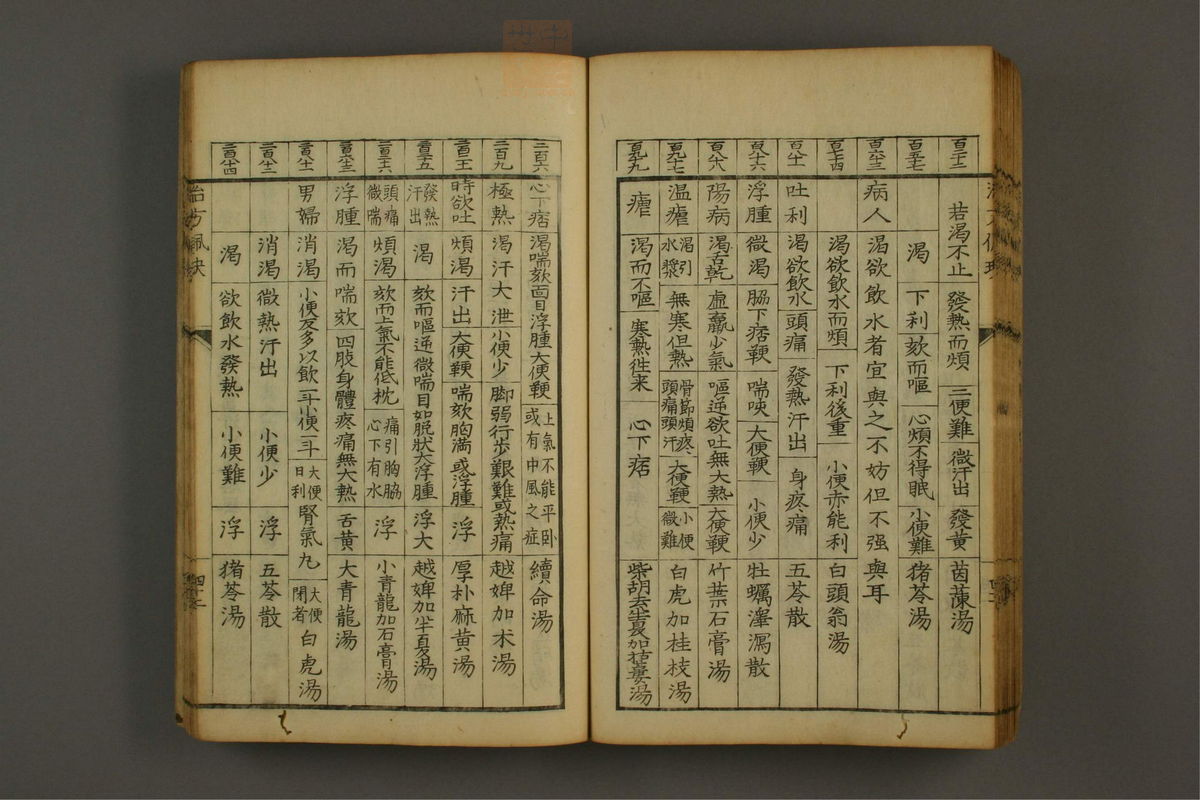 若渴不止 發熱而煩 二便難 微汗出 發黃 茵蔯湯
渴 下利欬而嘔 心煩不得眠 小便難 猪苓湯
病人 渴欲飲水者宜與之不妨但不强與耳
渴欲飲水而煩 下利後重 小便亦能利 白頭翁湯
吐利 渴欲飲水 頭痛 發熱汗出 身疼痛 五苓散
浮腫 微渴 脇下痞鞕 喘咳 大便鞕 小便少 牡蠣澤瀉散
陽病 渴舌乾 虛羸少氣 嘔逆欲吐 無大熱 大便鞕 竹葉石膏湯
温瘧 渴引水漿 無寒但熱 骨節煩疼頭痛頭汗 大便鞕 小便微難 白虎加桂枝湯
瘧 渴而不嘔 寒熱往来 心下痞 柴胡去半夏加括蔞湯
二百六 心下痞 渴喘欬面目浮腫 大便鞕 上氣不能平卧或有中風之症 續命湯
二百九 極熱 渴汗大泄 小便少 脚弱行步艱難或熱痛 越婢加朮湯
時欲吐 煩渴 汗出 大便鞕 喘欬胸満或浮腫 浮 厚朴麻黃湯
發熱汗出 渴 欬而嘔逆 微喘目如脫狀大浮腫 浮大 越婢加半夏湯
頭痛微喘 煩渴 欬而上氣不能低枕 痛引胸脇心下有水 浮 小青龍加石膏湯
浮腫 渴而喘欬 四肢身體疼痛無大熱 舌黃 大青龍湯
男婦 消渴 小便反多以飲一斗小便一斗 大便日利 腎氣丸 大便閉者 白虎湯
消渴 微熱汗出 小便少 浮 五苓散
渴 欲飲水發熱 小便難 浮 猪苓湯